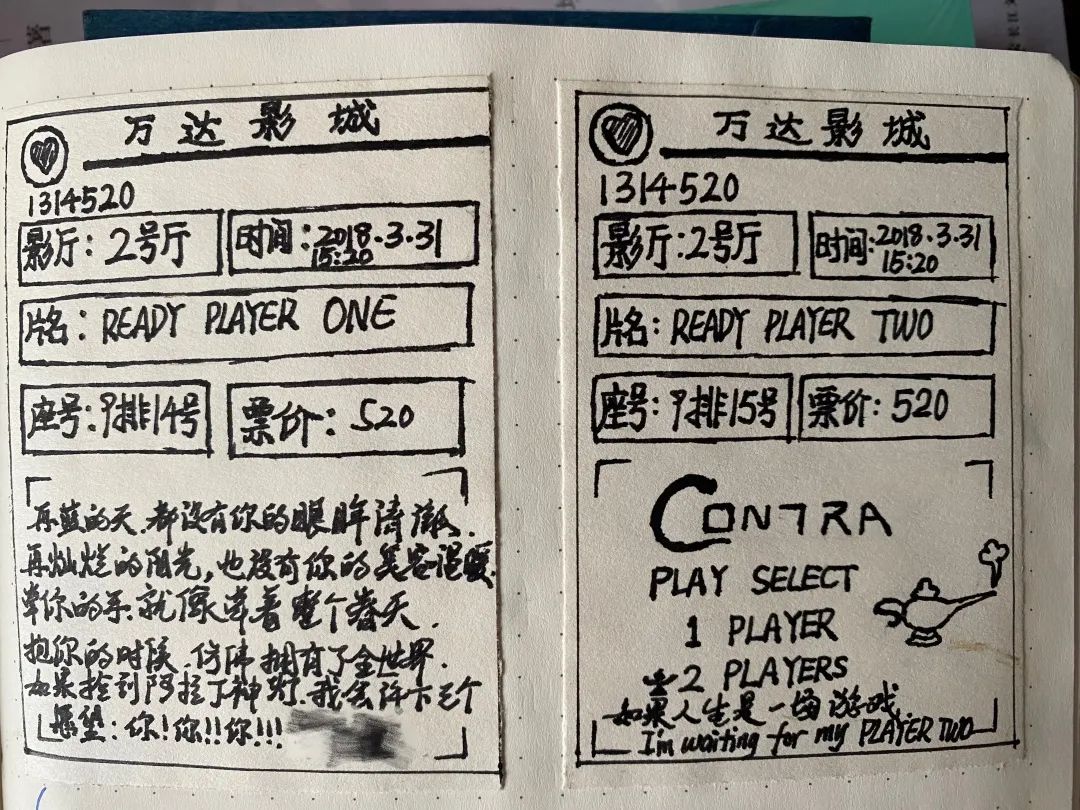 万达影城
1314520
影厅:2号厅
时间:2018.3.31
15:20
片名:READY PLAYER ONE
座号:9排14号
票价:520
再蓝的天.都没有你的眼眸清澈.
再灿烂的阳光,也没有你的笑容温暖.
牵你的手.就像牵着整个春天.
抱你的时候.仿佛拥有了全世界.
如果捡到阿拉丁神灯.我会许下三个
愿望:你!你!!你!!!
万达影城
1314520
影厅:2号厅
时间:2018.3.31
15:20
片名:READY PLAYER TWO
座号:9排15号
票价:520
CONTRA
PLAY SELECT
1 PLAYER
2 PLAYERS
如果人生是一场游戏.
I'm waiting for my PLAYER TWO